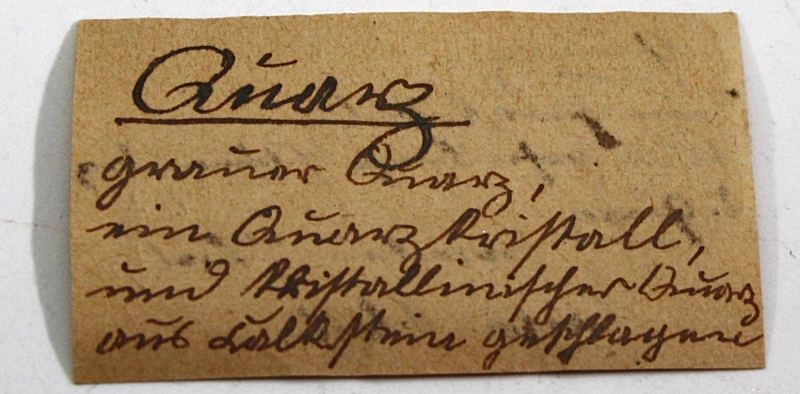 Quarz
grauer Quarz,
ein Quarzkristall,
und kristallinischer Quarz
aus Kalkstein geschlagen